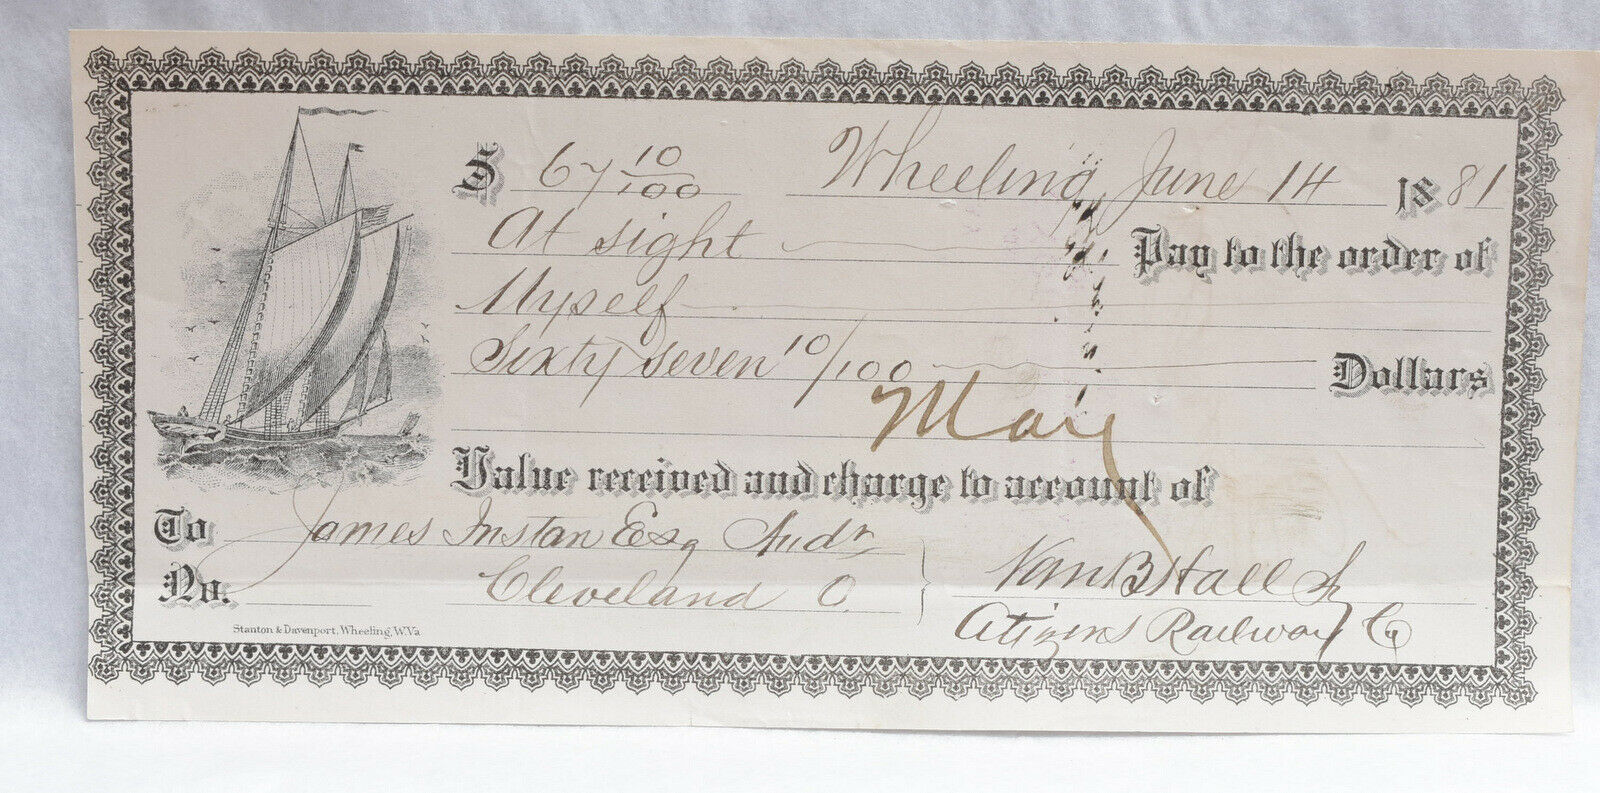 $ 67 10/100 Wheeling, June 14 1881
At sight Pay to the order of
Myself
Sixty seven 10/100 Dollars
Value received and charge to account of
To James Esq Audr
Cleveland O.
No.
Van B Hall
Citizens Railway Co
Stanton & Davenport, Wheeling, W.Va